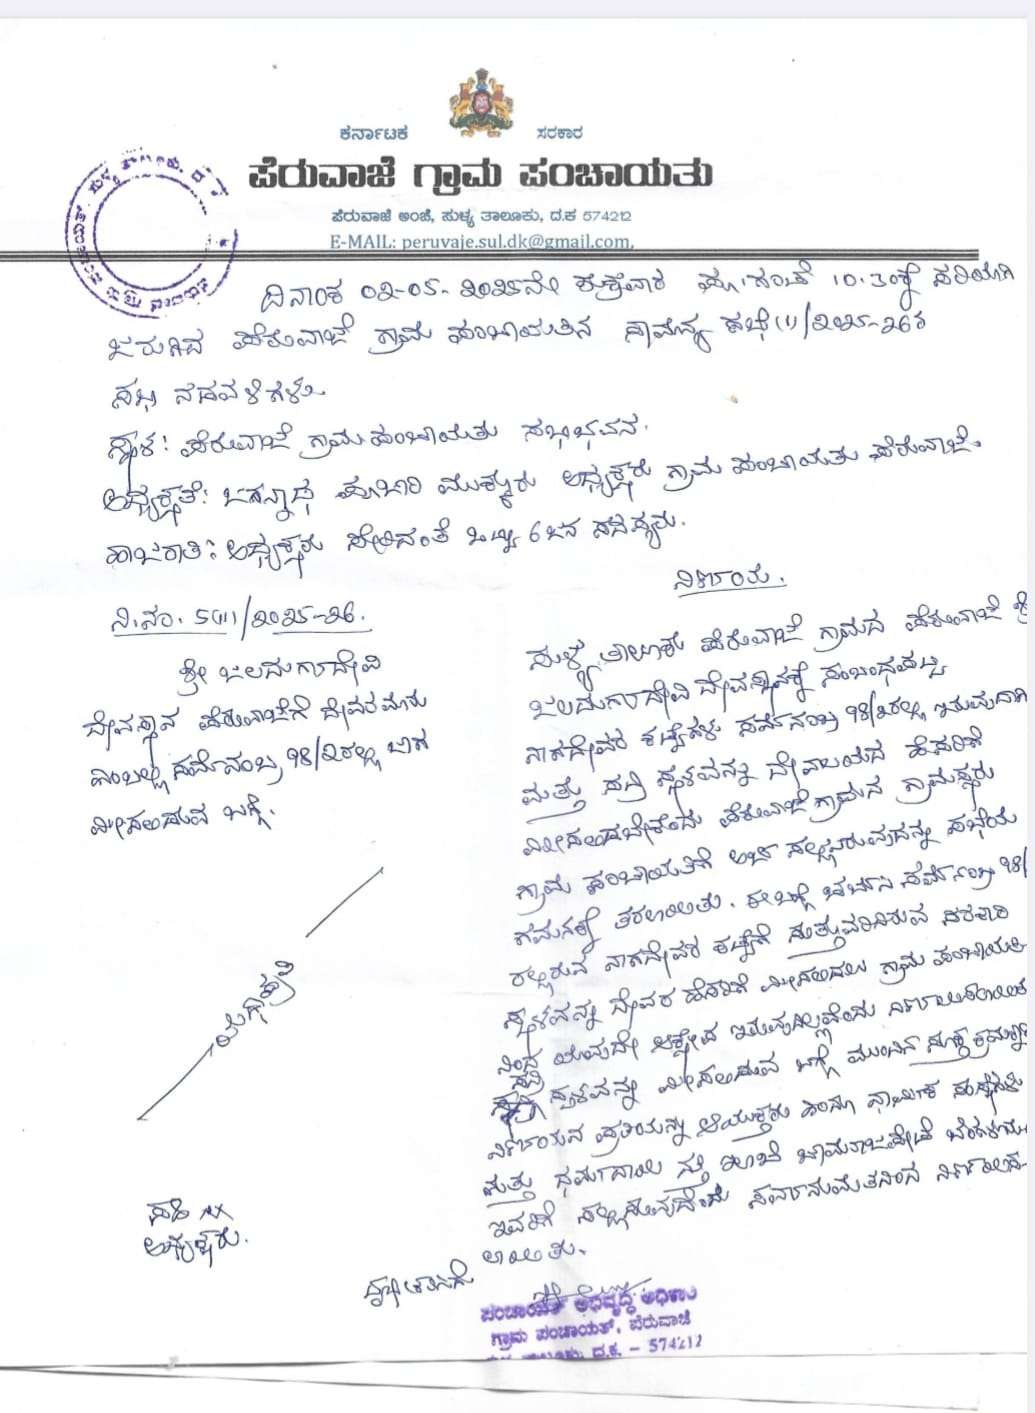 ಕರ್ನಾಟಕ ಸರಕಾರ
ಪೆರುವಾಜೆ ಗ್ರಾಮ ಪಂಚಾಯತು
ಪೆರುವಾಜೆ ಅಂಚೆ, ಸುಳ್ಯ ತಾಲೂಕು, ದ.ಕ 574212
E-MAIL: peruvaje.sul.dk@gmail.com,
ದಿನಾಂಕ 02-05-2025ನೇ ಶುಕ್ರವಾರ ಪೂ. ಗಂಟೆ 10.30ಕ್ಕೆ ಸರಿಯಾಗಿ
ಜರುಗಿದ ಪೆರುವಾಜೆ ಗ್ರಾಮ ಪಂಚಾಯತಿನ ಸಾಮಾನ್ಯ ಸಭೆ(1)/2025-26ರ
ಸಭಾ ನಡವಳಿಕೆಗಳು
ಸ್ಥಳ: ಪೆರುವಾಜೆ ಗ್ರಾಮ ಪಂಚಾಯತು ಸಭಾಭವನ.
ಅಧ್ಯಕ್ಷತೆ: ಜಗನ್ನಾಥ ಪೂಜಾರಿ ಮುಕ್ಕೂರು ಅಧ್ಯಕ್ಷರು ಗ್ರಾಮ ಪಂಚಾಯತು ಪೆರುವಾಜೆ.
ಹಾಜರಾತಿ: ಅಧ್ಯಕ್ಷರು ಸೇರಿದಂತೆ ಒಟ್ಟು 6 ಜನ ಸದಸ್ಯರು.
ನಿ.ನಂ. 5(11)/2025-26.
ಶ್ರೀ ಜಲದುರ್ಗಾದೇವಿ
ದೇವಸ್ಥಾನ ಪೆರುವಾಜೆಗೆ ದೇವರ
ಎಂಬಲ್ಲಿ ಸರ್ವೆ ನಂಬ್ರ 98/2ರಲ್ಲಿ ಜಾಗ
ಮೀಸಲಿಡುವ ಬಗ್ಗೆ.
ಸಹಿ
ಅಧ್ಯಕ್ಷರು.
ನಿರ್ಣಯ.
ಸುಳ್ಯ ತಾಲೂಕು ಪೆರುವಾಜೆ ಗ್ರಾಮದ ಪೆರುವಾಜೆ ಶ್ರೀ
ಜಲದುರ್ಗಾದೇವಿ ದೇವಸ್ಥಾನಕ್ಕೆ ಸಂಬಂಧಪಟ್ಟ
ನಾಗದೇವರ ಕಟ್ಟೆಗಳು ಸರ್ವೆ ನಂಬ್ರ 98/2ರಲ್ಲಿ ಇರುವುದಾಗಿ
ಮತ್ತು ಸದ್ರಿ ಸ್ಥಳವನ್ನು ದೇವಾಲಯದ ಹೆಸರಿಗೆ
ಮೀಸಲಿಡಬೇಕೆಂದು ಪೆರುವಾಜೆ ಗ್ರಾಮದ ಗ್ರಾಮಸ್ಥರು
ಗ್ರಾಮ ಪಂಚಾಯತಿಗೆ ಅರ್ಜಿ ಸಲ್ಲಿಸಿರುವುದನ್ನು ಸಭೆಯ
ಗಮನಕ್ಕೆ ತರಲಾಯಿತು. ಈ ಬಗ್ಗೆ ಚರ್ಚಿಸಿ ಸರ್ವೆ ನಂಬ್ರ 98/
ರಲ್ಲಿರುವ ನಾಗದೇವರ ಕಟ್ಟೆಗೆ ಸುತ್ತುವರಿದಿರುವ ಸರಕಾರಿ
ಸ್ಥಳವನ್ನು ದೇವರ ಹೆಸರಿಗೆ ಮೀಸಲಿಡಲು ಗ್ರಾಮ ಪಂಚಾಯತಿ
ನಿಂದ ಯಾವುದೇ ಆಕ್ಷೇಪ ಇರುವುದಿಲ್ಲವೆಂದು ನಿರ್ಣಯಿಸಲಾಯಿತು
ಸದ್ರಿ ಸ್ಥಳವನ್ನು ಮೀಸಲಿಡುವ ಬಗ್ಗೆ ಮುಂದಿನ ಸೂಕ್ತ ಕ್ರಮಕ್ಕಾಗಿ
ನಿರ್ಣಯದ ಪ್ರತಿಯನ್ನು ಆಯುಕ್ತರು ಹಿಂದೂ ಧಾರ್ಮಿಕ ಸಂಸ್ಥೆಗಳು
ಮತ್ತು ಧರ್ಮಾದಾಯ ದತ್ತಿ ಇಲಾಖೆ ಚಾಮರಾಜಪೇಟೆ ಬೆಂಗಳೂರು
ಇವರಿಗೆ ಸಲ್ಲಿಸುವುದೆಂದು ಸರ್ವಾನುಮತದಿಂದ ನಿರ್ಣಯಿಸ
ಲಾಯಿತು.
ಪಂಚಾಯತ್ ಅಭಿವೃದ್ಧಿ ಅಧಿಕಾರಿ
ಗ್ರಾಮ ಪಂಚಾಯತ್, ಪೆರುವಾಜೆ
ದ.ಕ. - 574212